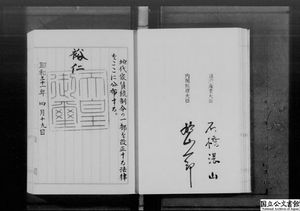 地代家賃統制令の一部を改正する法律
をここに公布する。
裕仁
天皇
御璽
昭和三十一年四月十九日
内閣総理大臣
通商産業大臣
石橋湛山
国立公文書館
National Archives of Japan